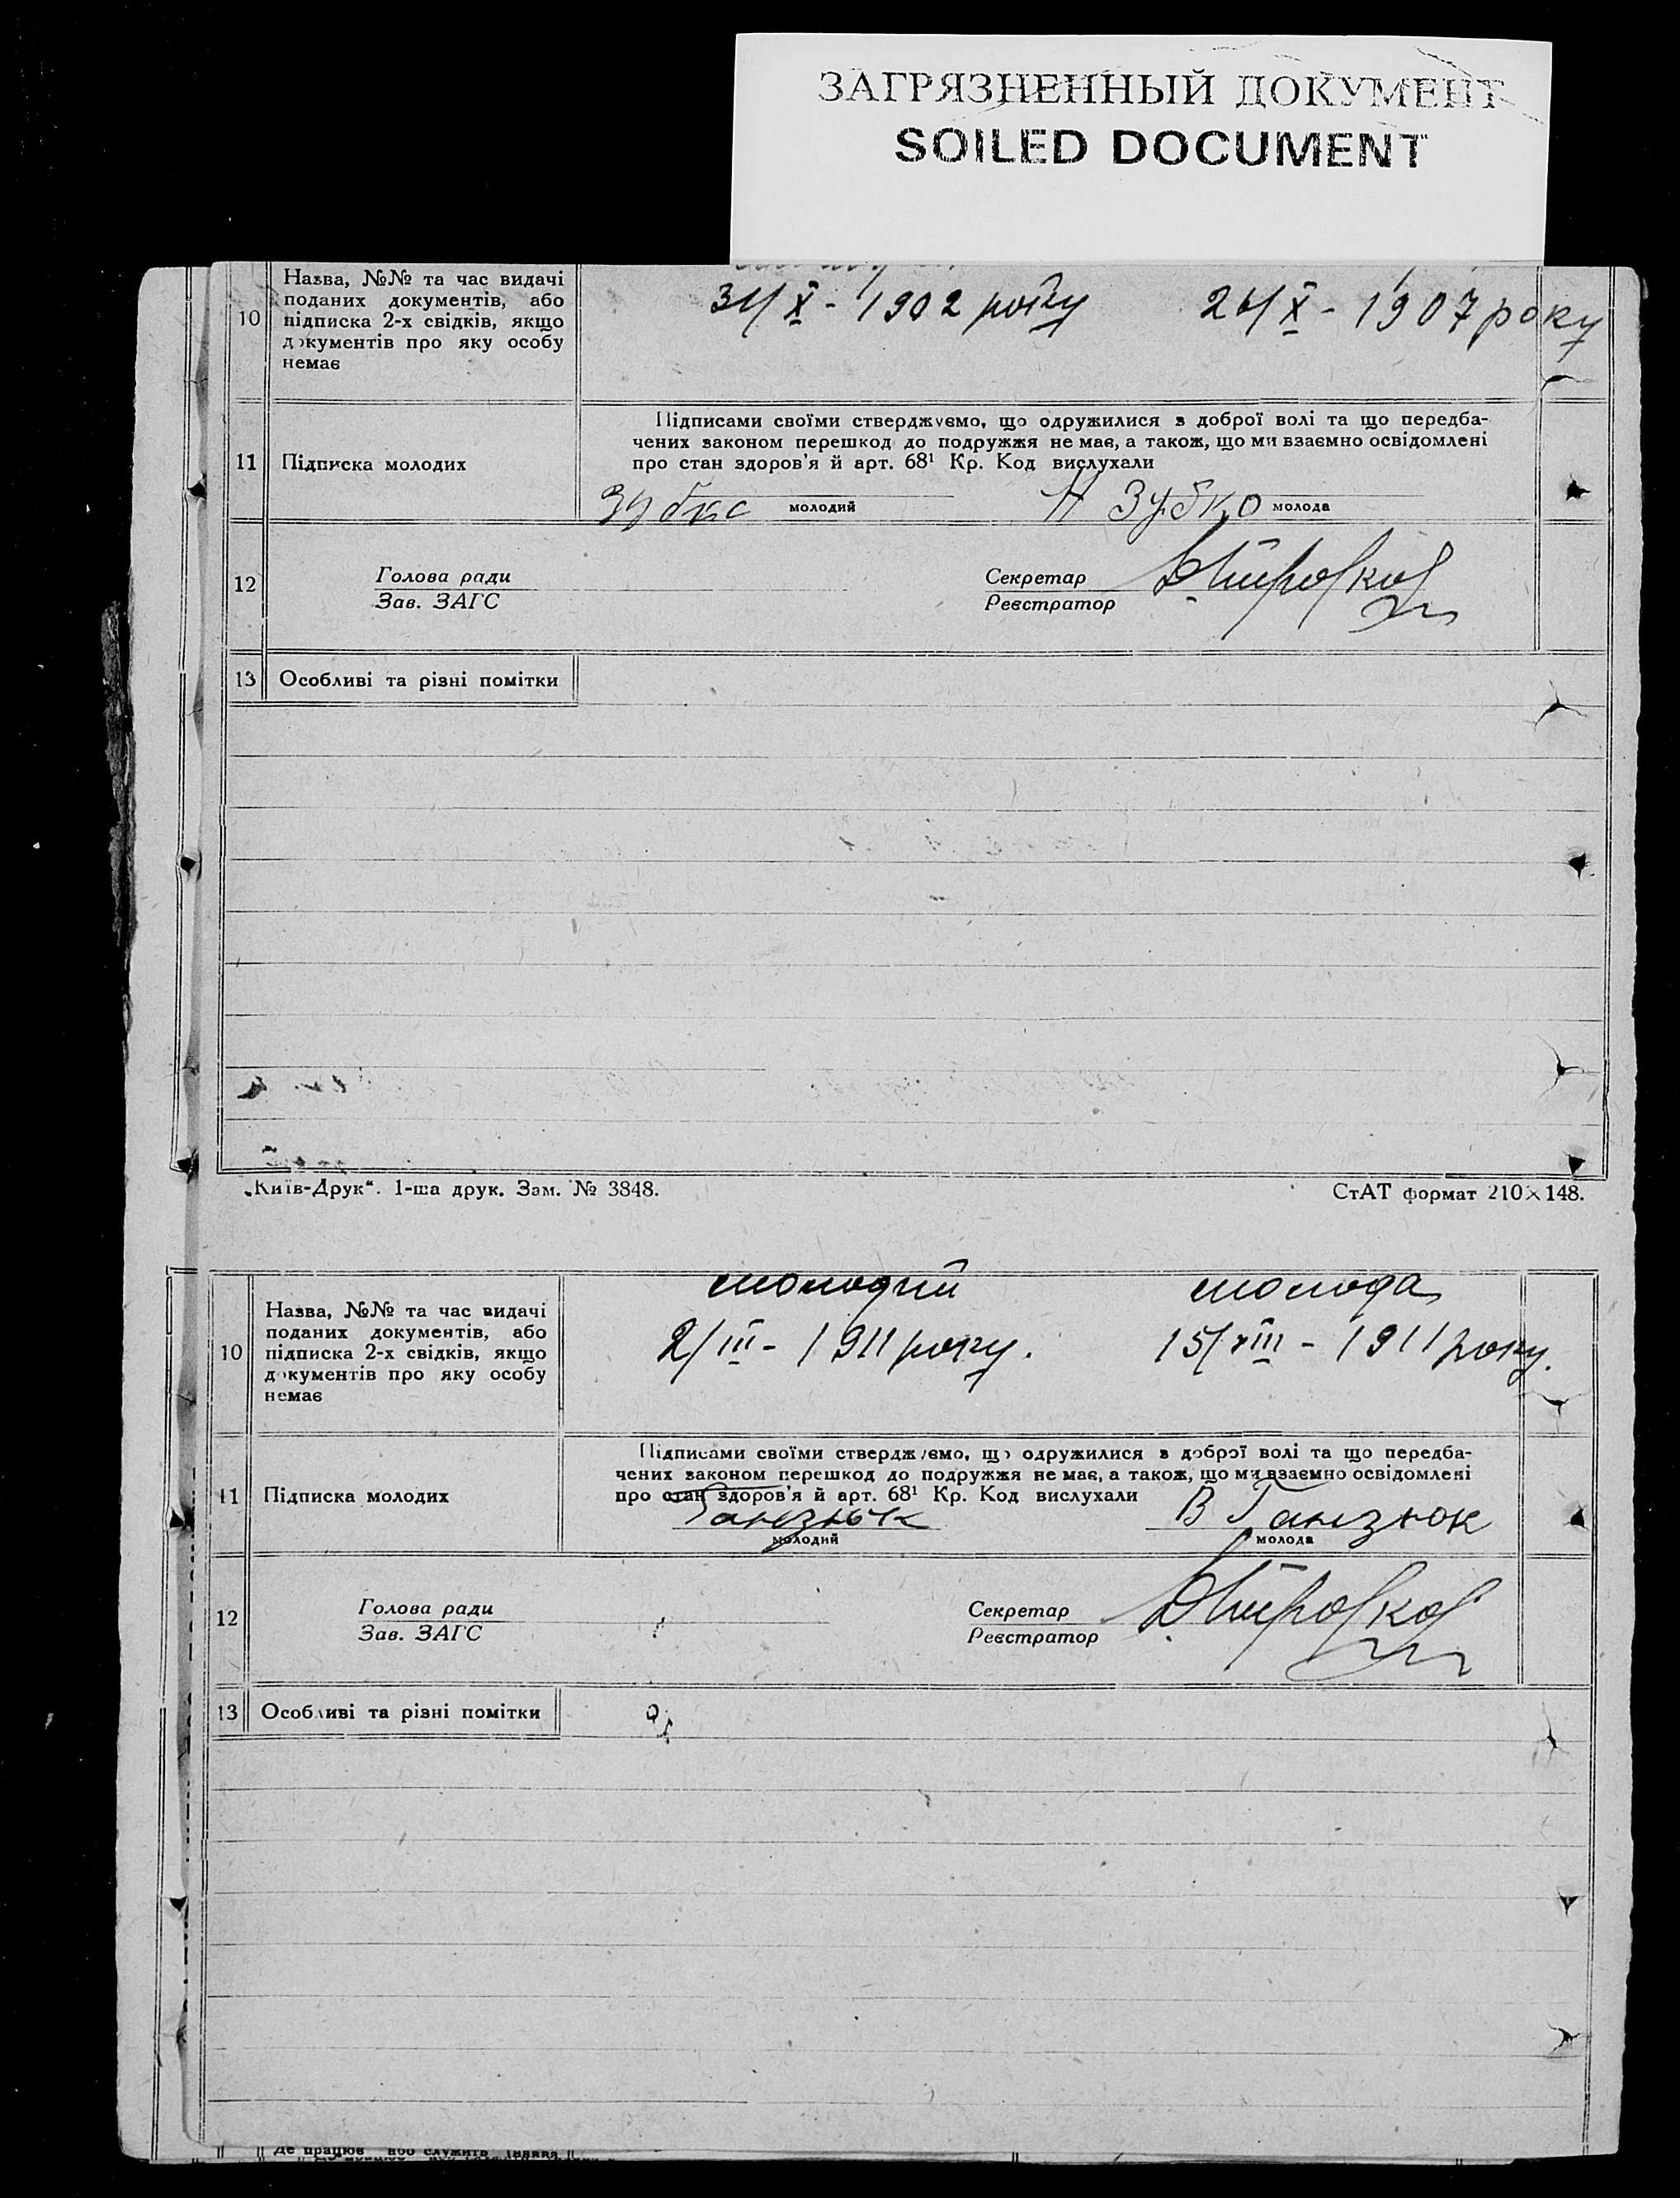 ЗАГРЯЗНЕННЫЙ ДОКУМЕНТ
SOILED DOCUMENT
10
Назва, №№ та час видачі
поданих документів, або
підписка 2-х свідків, якщо
документів про яку особу
немає
31/X - 1902 року
26/X - 1907 року
11
Підписка молодих
Підписами своїми стверджуємо, що одружилися з доброї волі та що передба-
чених законом перешкод до подружжя не має, а також, що ми взаємно освідомлені
про стан здоров'я й арт. 68¹ Кр. Код вислухали
Зубко
молодий
Н Зубко
молода
12
Голова ради
Зав. ЗАГС
Секретар
Реєстратор
13
Особливі та різні помітки
„Київ-Друк“. 1-ша друк. Зам. № 3848.
СтАТ формат 210×148.
10
Назва, №№ та час видачі
поданих документів, або
підписка 2-х свідків, якщо
документів про яку особу
немає
молодий
молода
2/III - 1911 року.
15/VIII - 1911 року.
11
Підписка молодих
Підписами своїми стверджуємо, що одружилися з доброї волі та що передба-
чених законом перешкод до подружжя не має, а також, що ми взаємно освідомлені
про стан здоров'я й арт. 68¹ Кр. Код вислухали
Ганзюк
молодий
В Ганзюк
молода
12
Голова ради
Зав. ЗАГС
Секретар
Реєстратор
13
Особливі та різні помітки
Де працює або служить